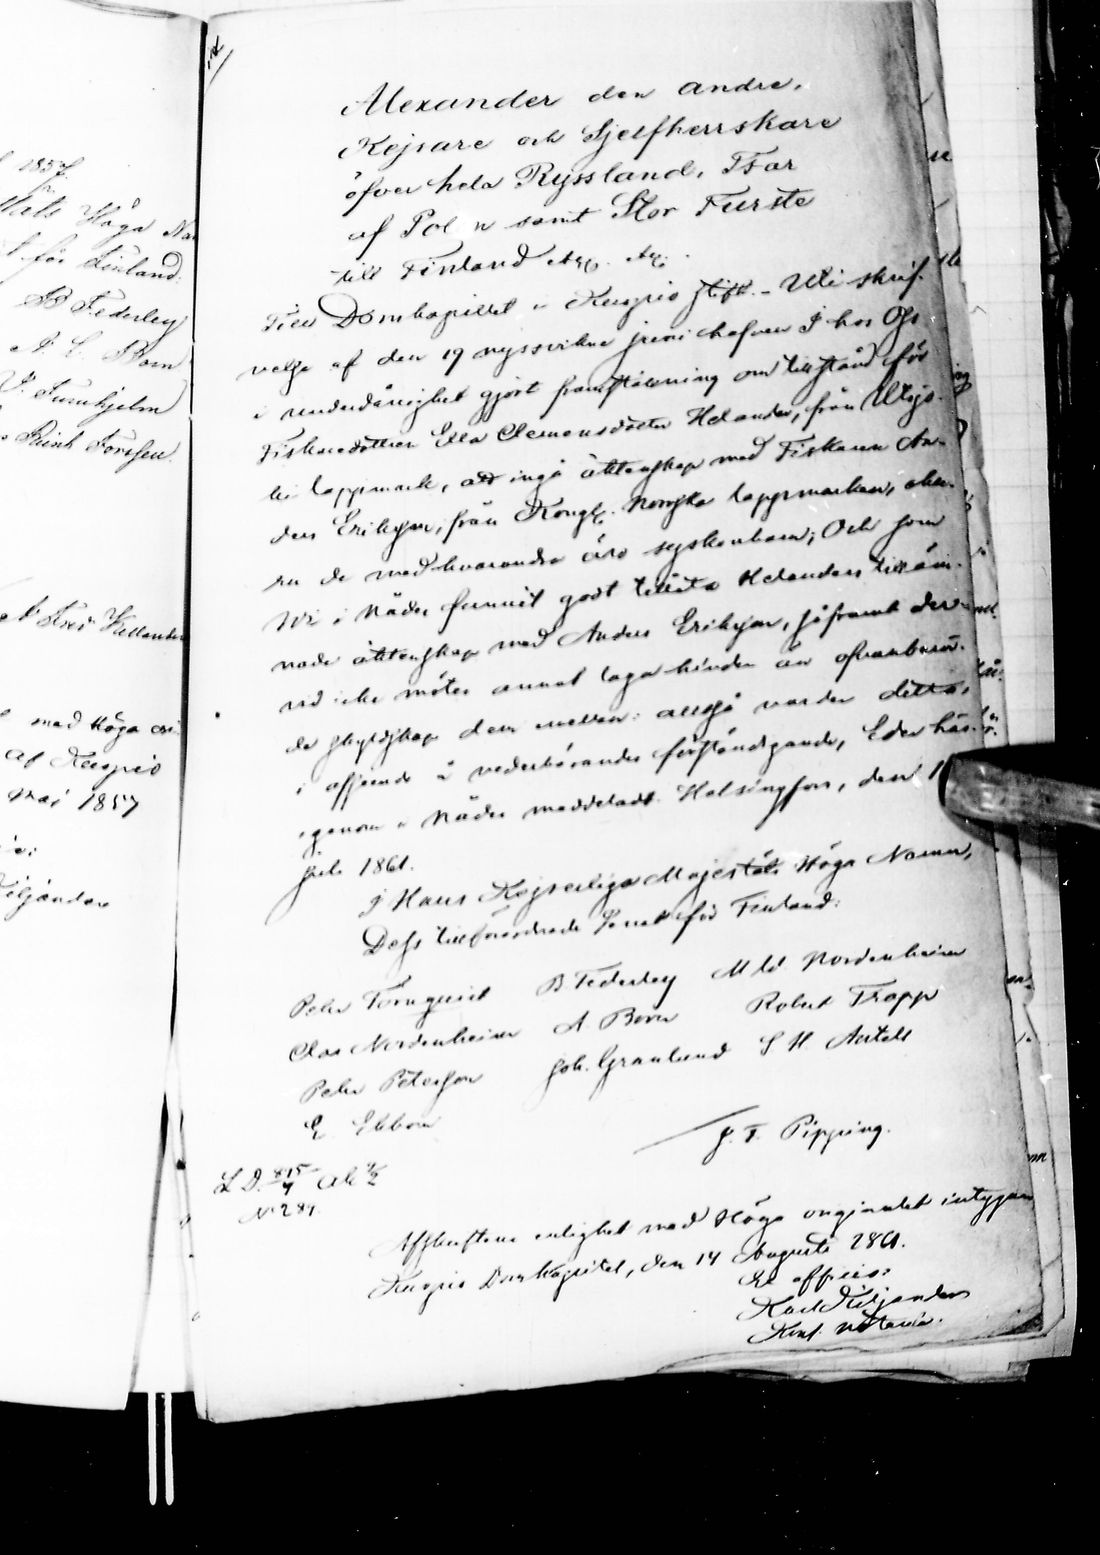 l 1857.
täts Höga Na
t för Finland:
B Federley
A. E. Born
J. Furuhjelm
Reinh Forssen.
Fred Kellander
med Höga ori
af Kuopio
Maj 1857
Kiljander
Alexander den andre,
Kejsare och Sjelfherrskare
öfver hela Ryssland, Tsar
af Polen samt Stor Furste
till Finland etc. etc.
Till Domkapitlet i Kuopio stift. - Uti skrif-
velse af den 19 nyssvikne juni hafven I hos Oss
i underdånighet gjort framställning om tillstånd för
Fiskaredottren Ella Clemensdotter Helander, från Utsjo-
ki lappmark, att ingå äktenskap med Fiskaren An-
ders Eriksson, från Kongl. Norska lappmarken, ehu-
ru de med hvarandra äro syskonbarn; Och som
Wi i Nåder funnit godt tillåta Helanders tilläm-
nade äktenskap med Anders Eriksson, såframt der-
vid icke möter annat laga hinder än ofvanberör-
de skyldskap dem emellan: alltså varder detta,
i afseende å vederbörandes förständigande, Eder här-
igenom i Nåder meddeladt. Helsingfors, den 1
Juli 1861.
I Hans Kejserliga Majestäts Höga Namn,
Dess tillförordnade Senat för Finland:
Peter Törnquist B Federley M W. Nordenheim
Clas Nordenheim A. Born Robert Trapp
Peter Peterson Joh. Granlund S H. Antell
E. Ekbom
J. F. Pipping.
L D. 815/4
№ 289.
Afskriftens enlighet med Höga originalet intygar
Kuopio Domkapitel, den 14 Augusti 1861.
Ex officio:
Karl Kiljander
Kons. Notarie.